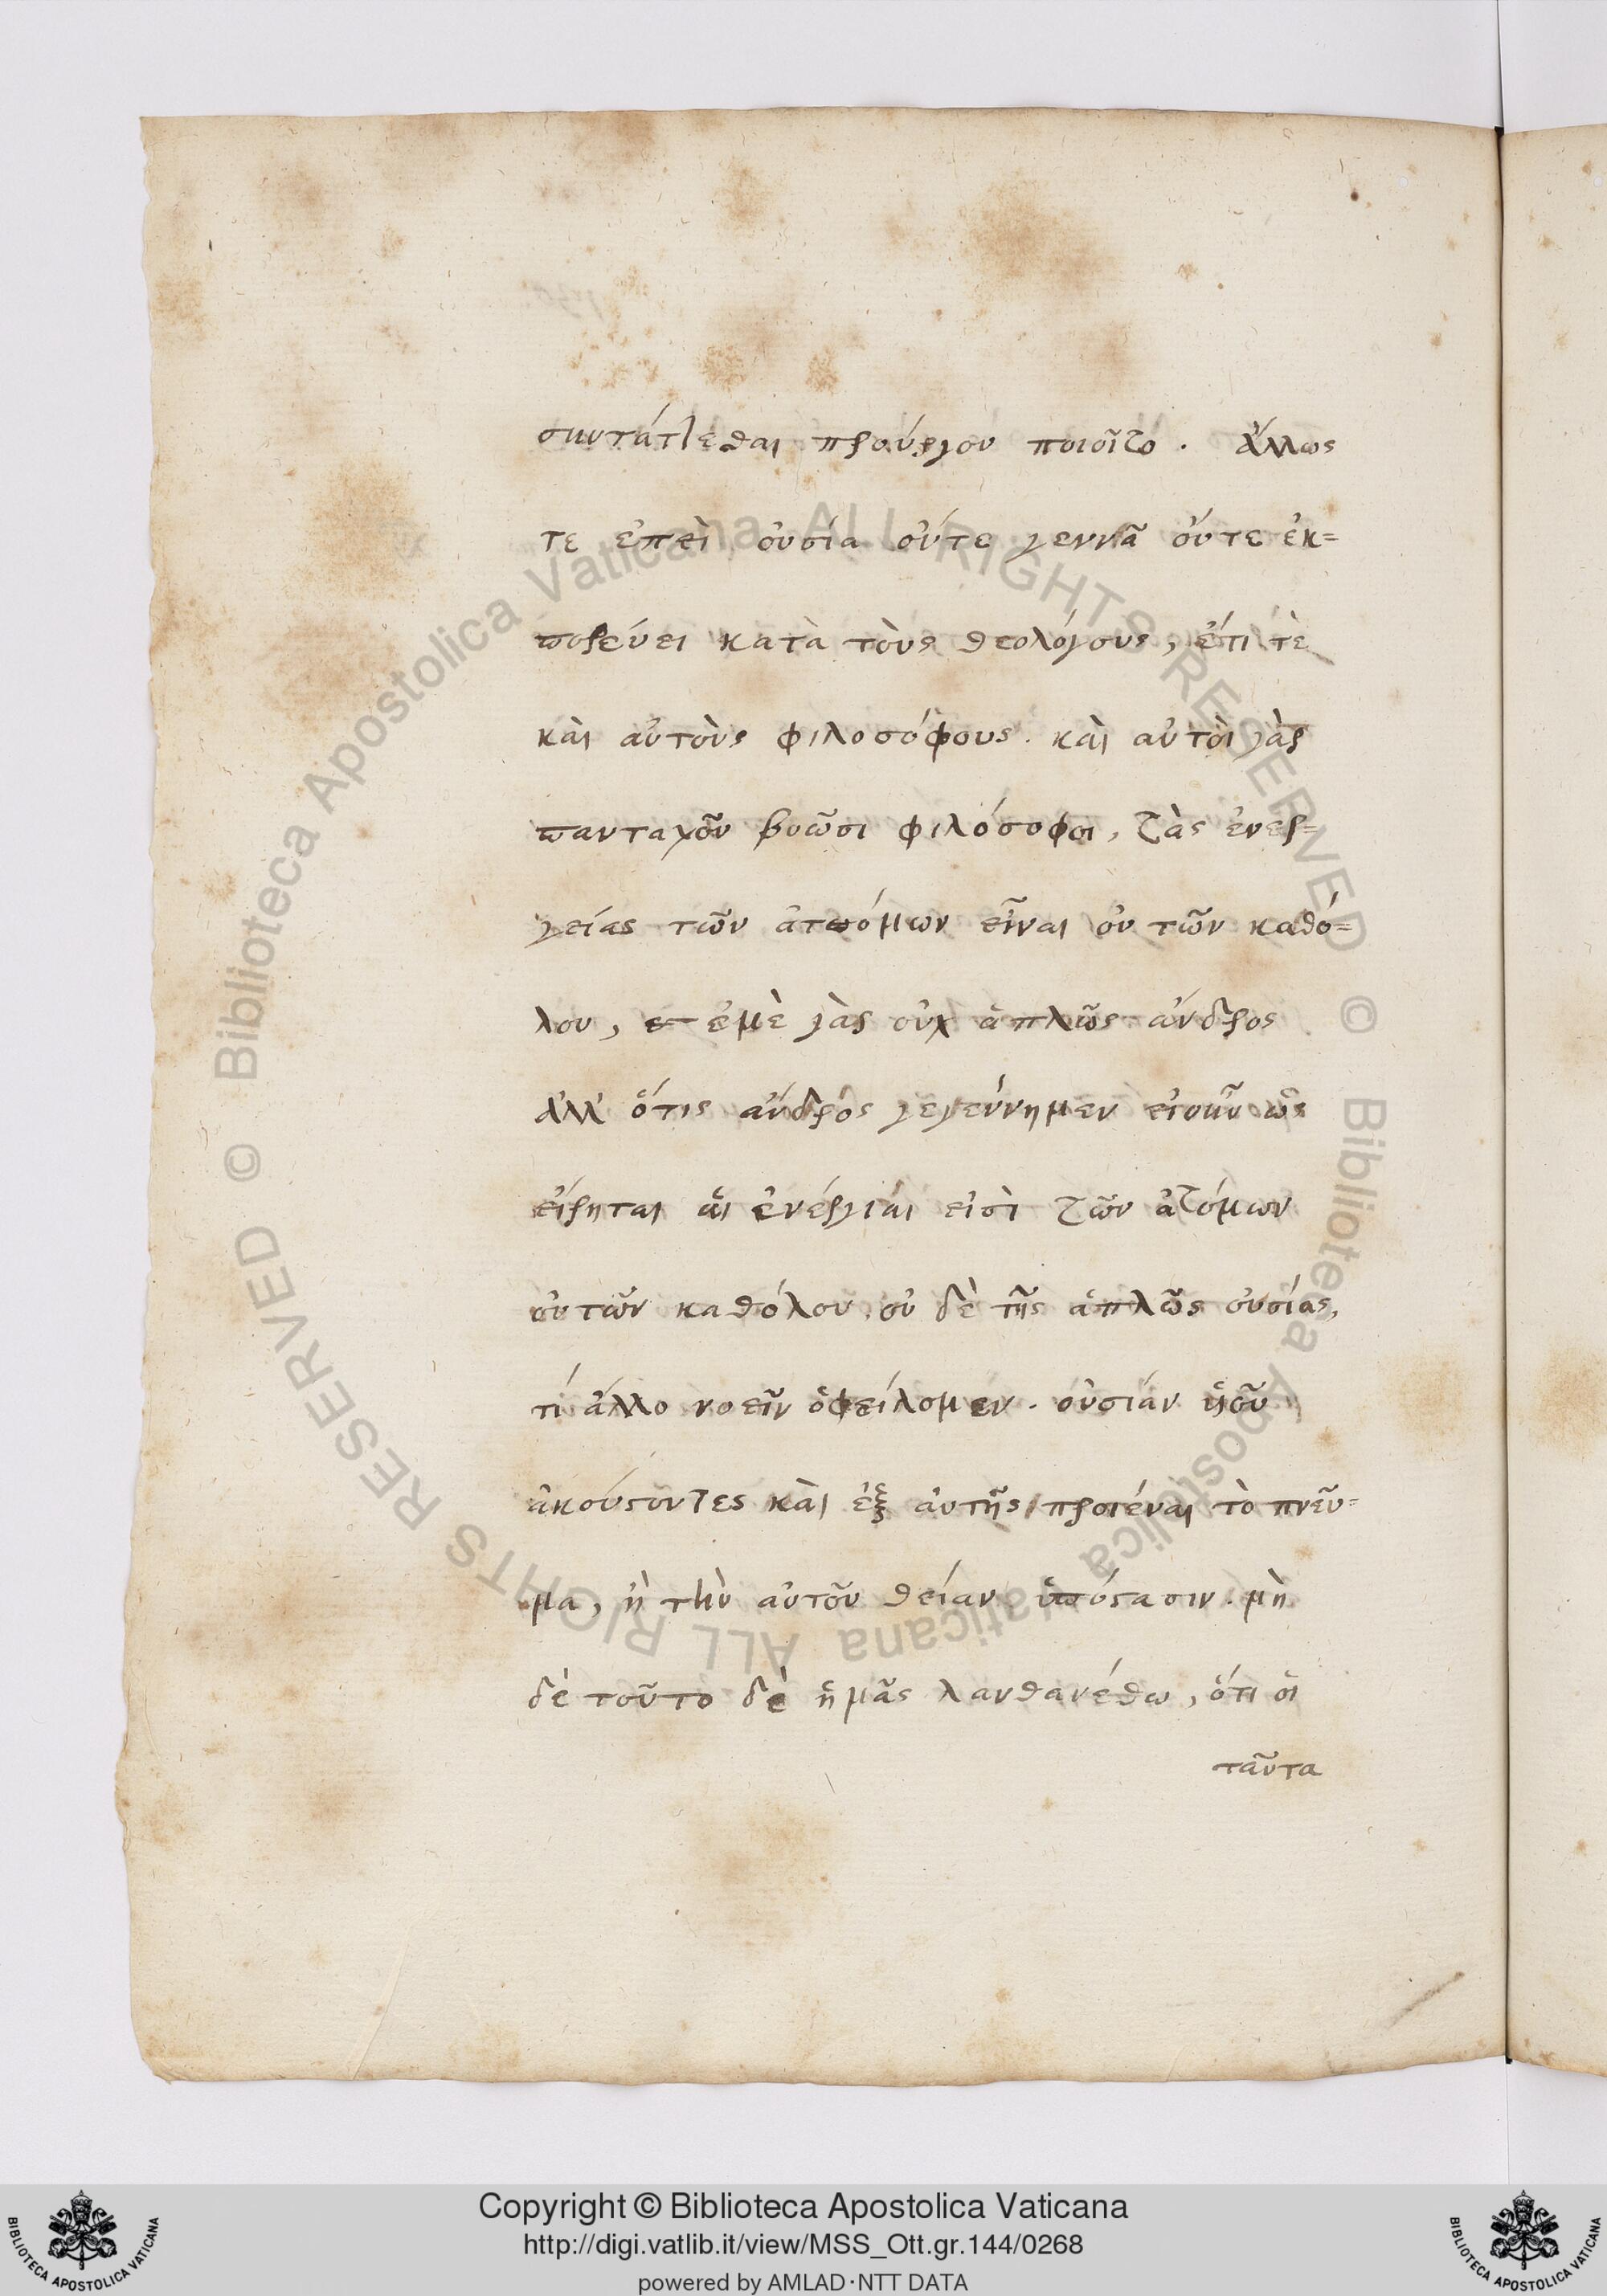 συντάττεσθαι προύργου ποιοῖτο. ἄλλως
τε ἐπεὶ οὐσία οὔτε γεννᾶ οὔτε ἐκ=
πορεύει κατὰ τοὺς θεολόγους, ἔτι τὲ
καὶ αὐτοὺς φιλοσόφους. καὶ αὐτοὶ γὰρ
πανταχοῦ βοῶσι φιλόσοφοι, τὰς ἐνερ=
γείας τῶν ἀτόμων εἶναι οὐ τῶν καθό=
λου, ἐμὲ γὰρ οὐχ ἁπλῶς ἄνδρος
ἀλλ' ὅτις ἄνδρὸς γεγεύνημεν εἰσῦν ὡς
εἴρηται αἱ ἐνέργιαι εἰσὶ τῶν ἀτόμων
οὐτῶν καθόλου οὐ δὲ τῆς ἁπλῶς οὐσίας,
τί ἄλλο νοεῖν ὀφείλομεν. οὐσίαν
ἀκούσοντες καὶ ἐξ αὐτῆς προιέναι τὸ πνεῦ=
μα, ἢ τὴν αὐτοῦ θείαν ὑπόστασιν. μὴ
δὲ τοῦτο δὲ ἡμᾶς λανθανέσθω, ὅτι οἱ
ταῦτα
Copyright © Biblioteca Apostolica Vaticana
http://digi.vatlib.it/view/MSS_Ott.gr.144/0268
powered by AMLAD·NTT DATA
BIBLIOTECA APOSTOLICA VATICANA
BIBLIOTECA APOSTOLICA VATICANA
© Biblioteca Apostolica Vaticana ALL RIGHTS RESERVED
© Biblioteca Apostolica Vaticana ALL RIGHTS RESERVED